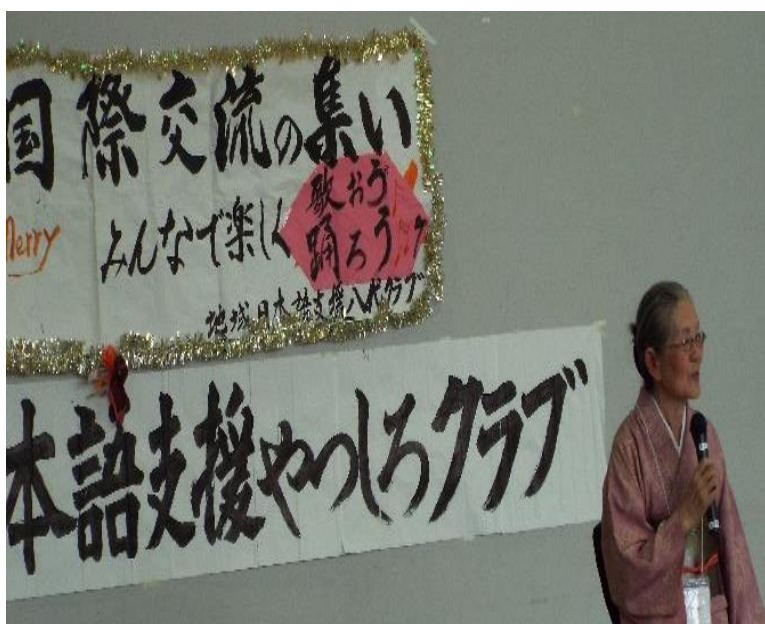 国際交流の集い
Merry
みんなで楽しく
歌おう
踊ろう
地域日本語支援八代クラブ
本語支援やつしろクラブ